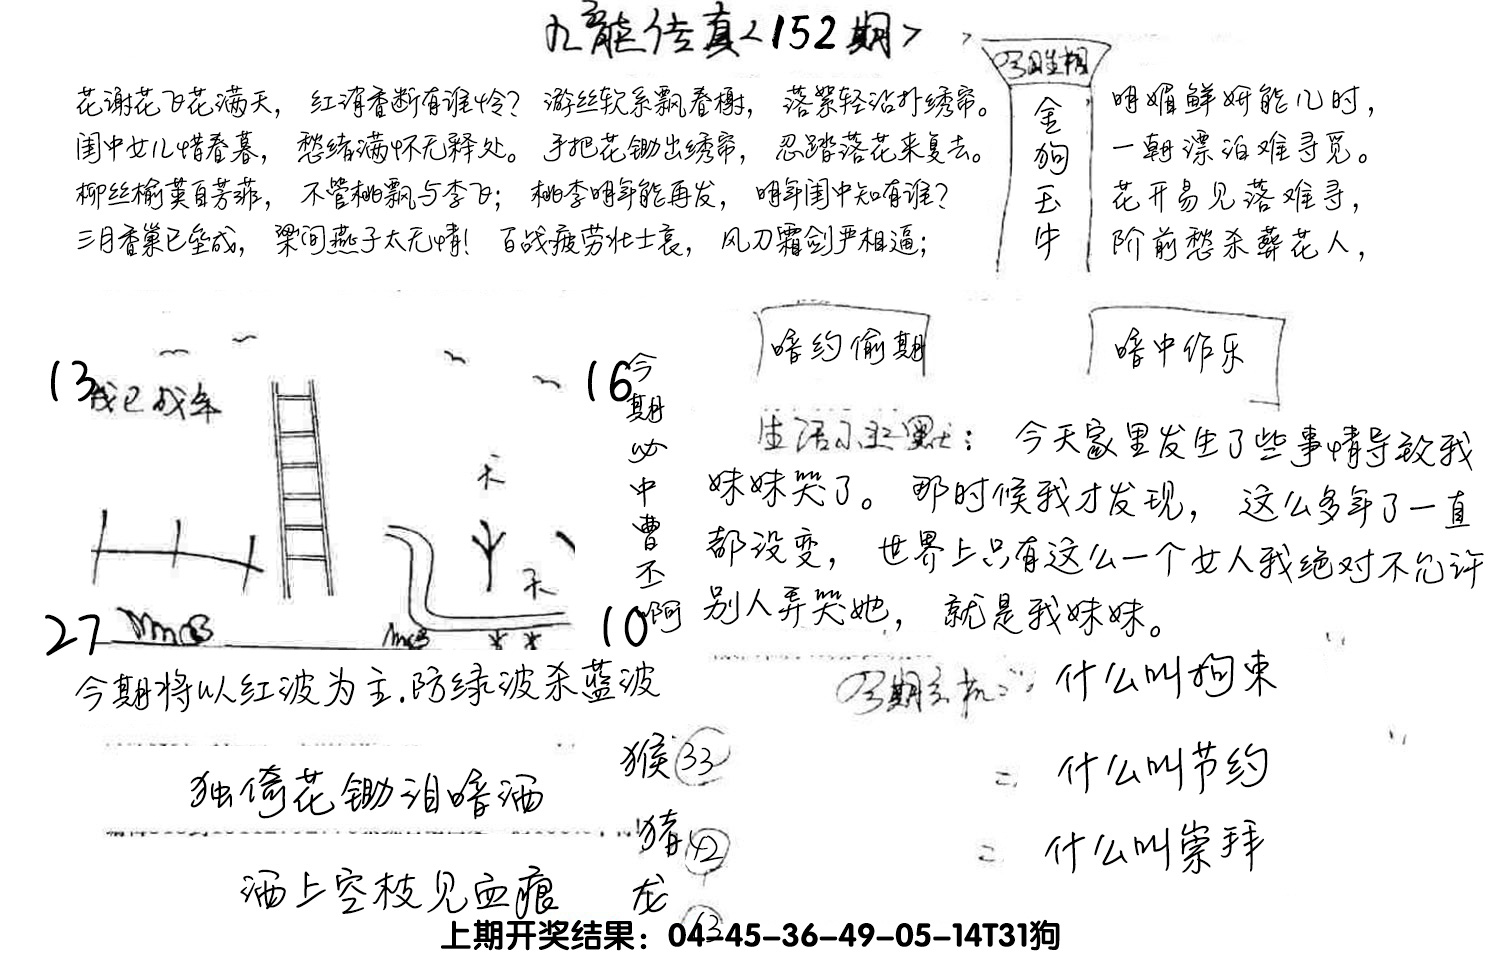 九龙传真<152期>
花谢花飞花满天，红消香断有谁怜？游丝软系飘春榭，落絮轻沾扑绣帘。
闺中女儿惜春暮，愁绪满怀无释处。手把花锄出绣帘，忍踏落花来复去。
柳丝榆荚自芳菲，不管桃飘与李飞；桃李明年能再发，明年闺中知有谁？
三月香巢已垒成，梁间燕子太无情！百战疲劳壮士哀，风刀霜剑严相逼；
今期生相
金狗玉牛
明媚鲜妍能几时，
一朝漂泊难寻觅。
花开易见落难寻，
阶前愁杀葬花人，
13
我已成年
16
27
10
天
天
今期必中曹丕啊
暗约偷期
暗中作乐
生活小幽默：今天家里发生了些事情导致我
妹妹哭了。那时候我才发现，这么多年了一直
都没变，世界上只有这么一个女人我绝对不允许
别人弄哭她，就是我妹妹。
今期将以红波为主.防绿波杀蓝波
今期玄机一：什么叫拘束
二 什么叫节约
二 什么叫崇拜
独倚花锄泪暗洒
洒上空枝见血痕
猴33
猪42
龙13
上期开奖结果：04-45-36-49-05-14T31狗